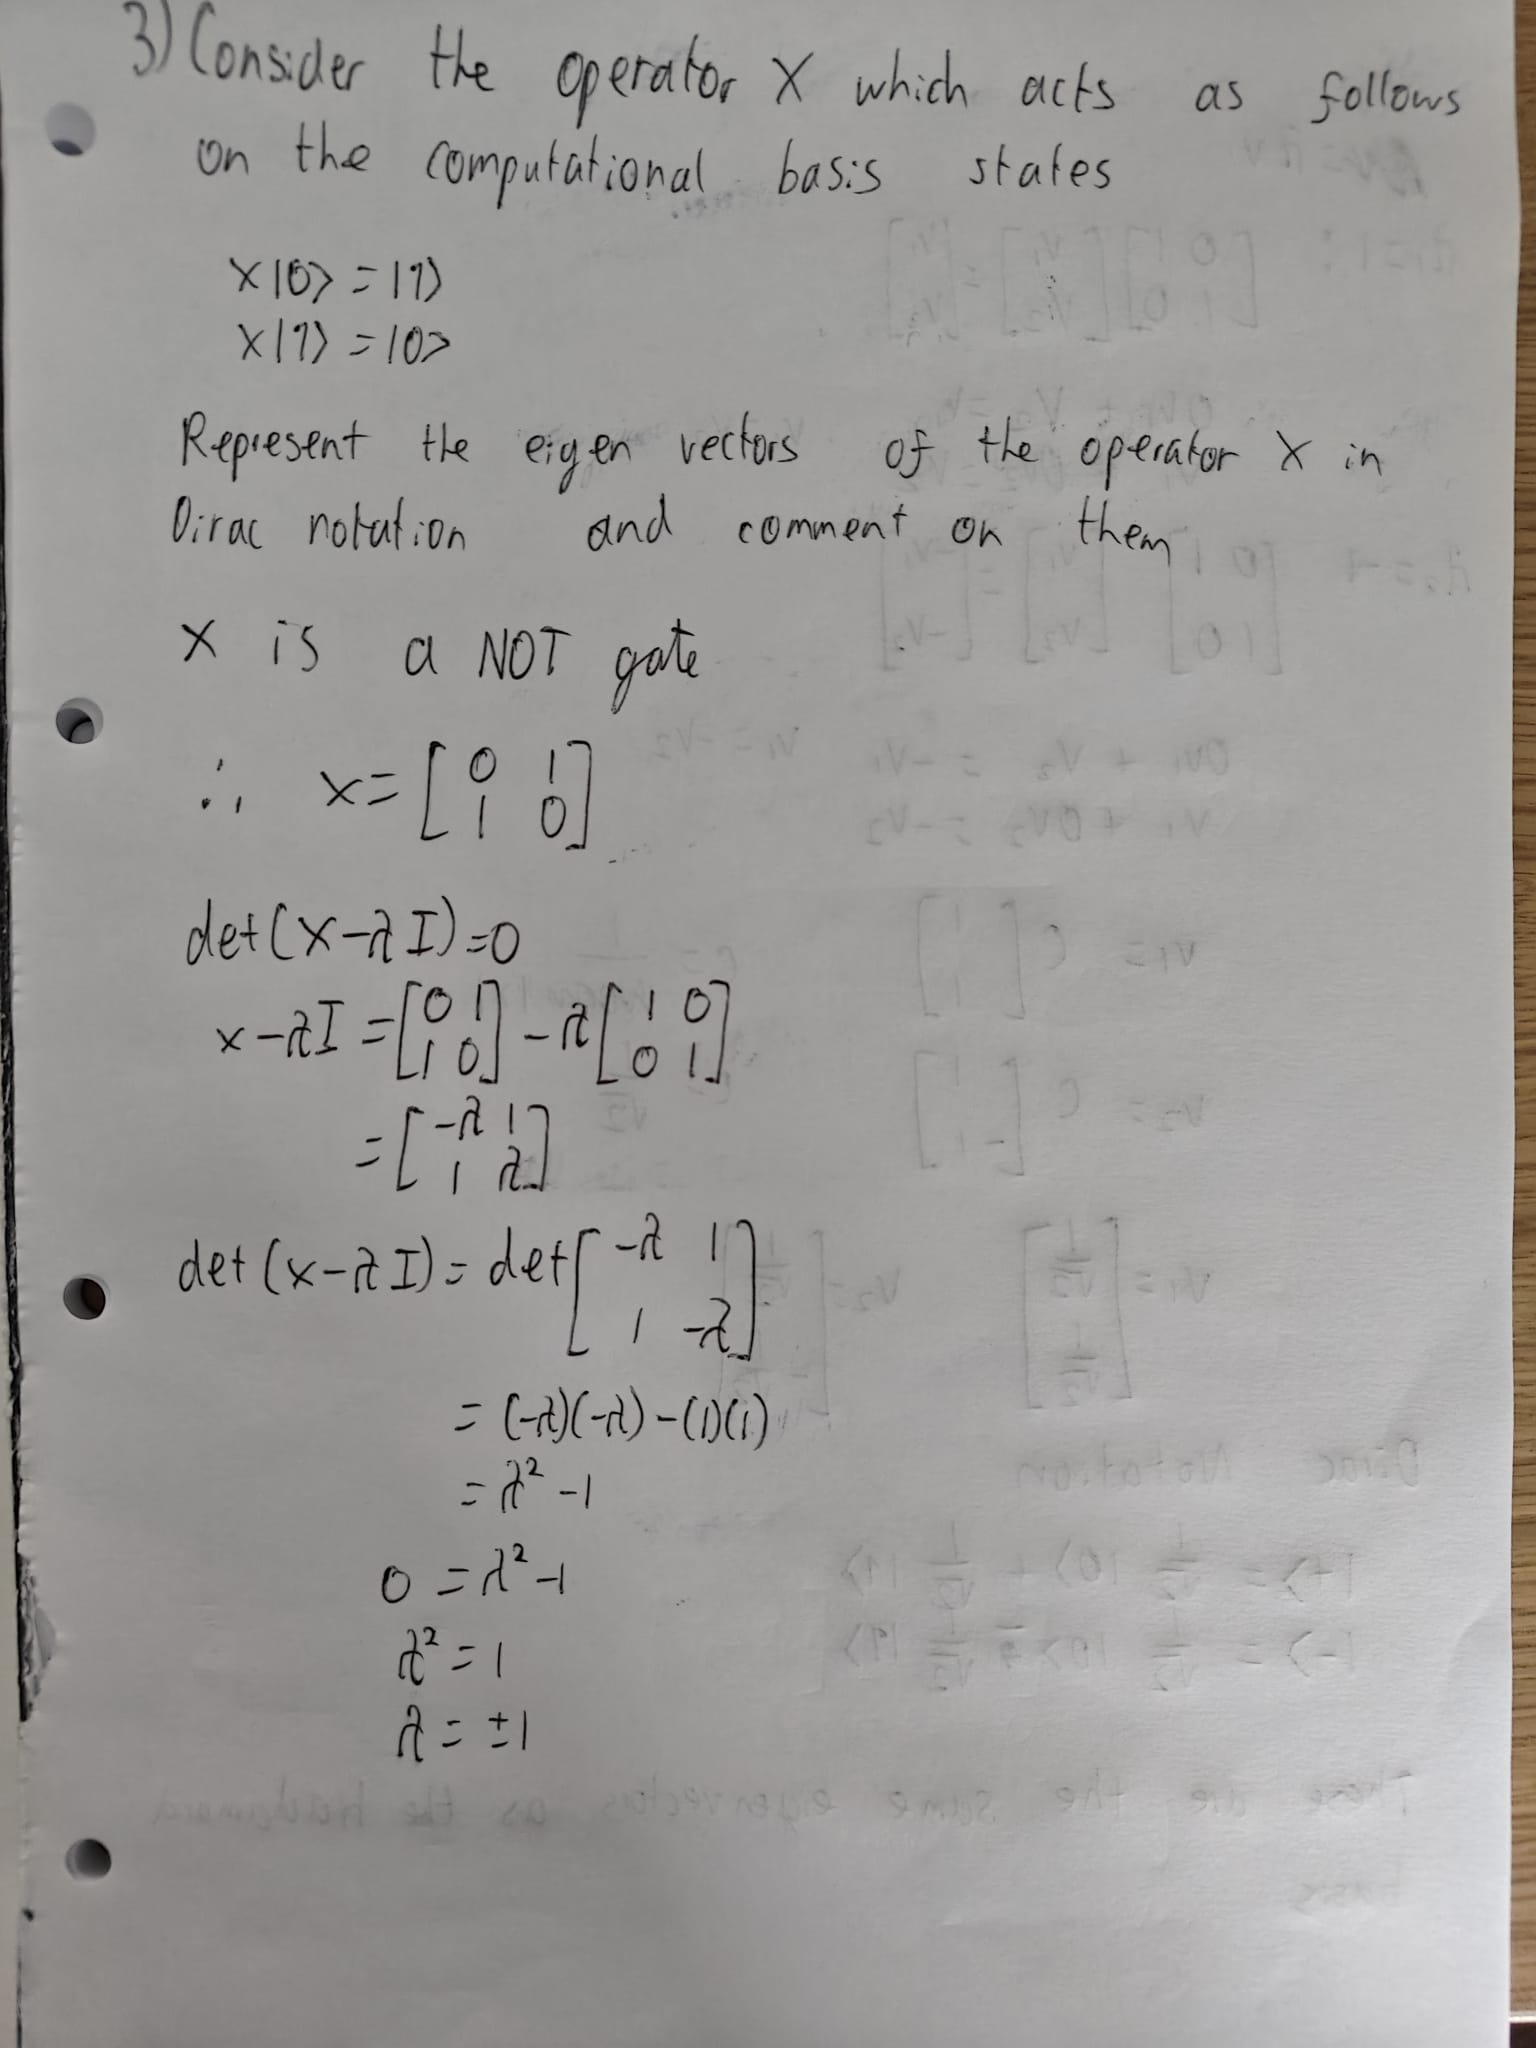 3) Consider the operator X which acts as follows
on the computational basis states
X|0⟩ = |1⟩
X|1⟩ = |0⟩
Represent the eigen vectors of the operator X in
Dirac notation and comment on them
X is a NOT gate
∴ X = [0 1; 1 0]
det(X-λI)=0
X-λI = [0 1; 1 0] - λ[1 0; 0 1]
= [-λ 1; 1 λ]
det(X-λI) = det[-λ 1; 1 -λ]
= (-λ)(-λ) - (1)(1)
= λ² - 1
0 = λ² - 1
λ² = 1
λ = ±1